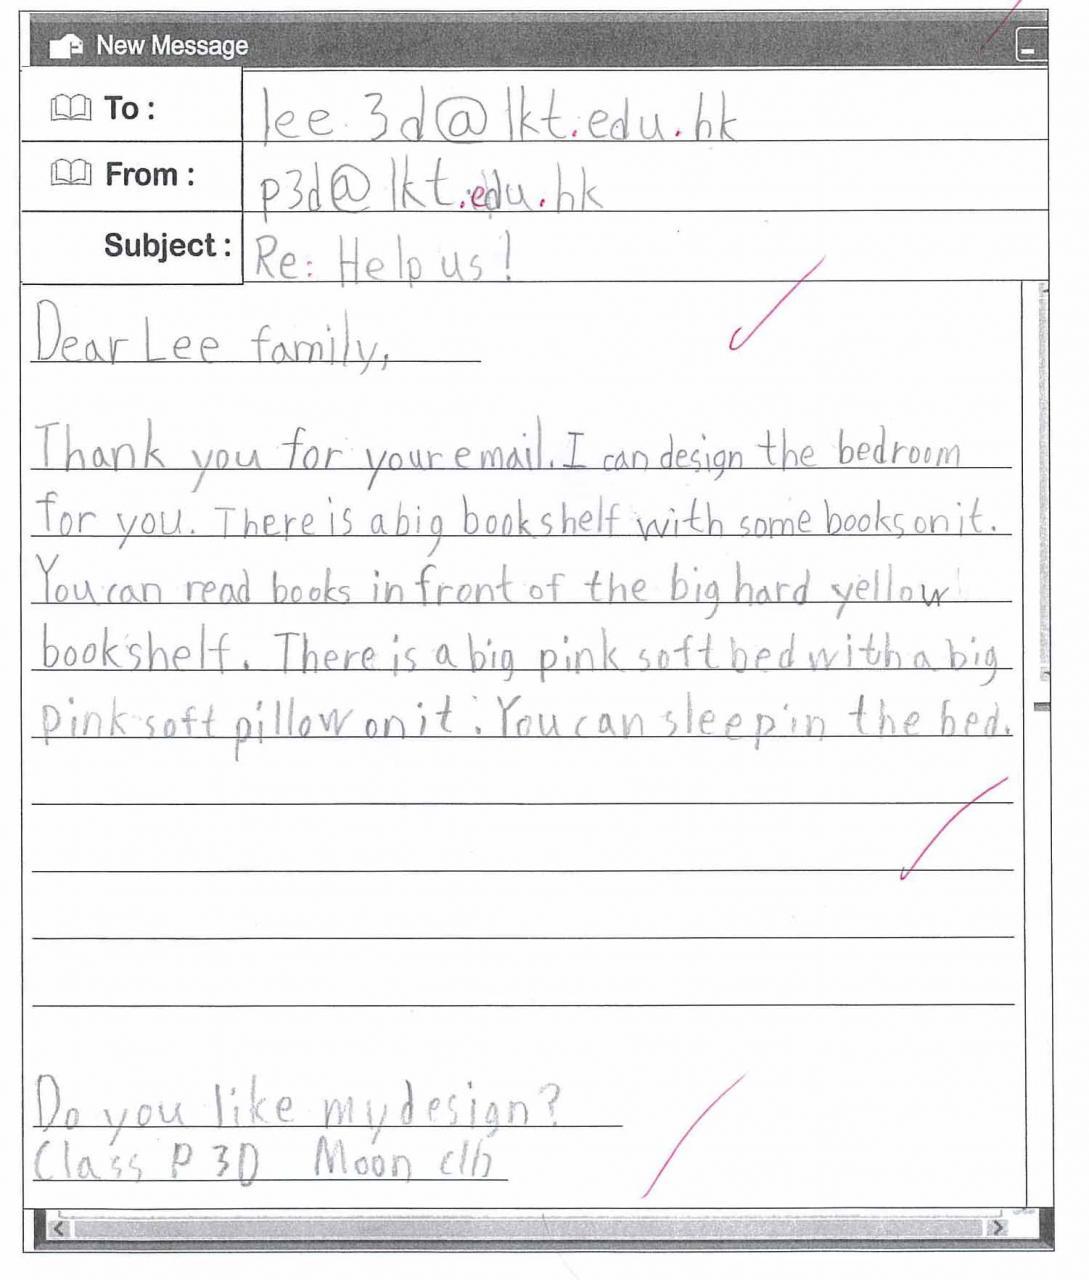 New Message
To : lee.3d@lkt.edu.hk
From : p3d@lkt.edu.hk
Subject : Re: Help us!
Dear Lee family,
Thank you for your email. I can design the bedroom
for you. There is a big bookshelf with some books on it.
You can read books in front of the big hard yellow
bookshelf. There is a big pink soft bed with a big
pink soft pillow on it. You can sleep in the bed.
Do you like my design?
Class P 3D Moon